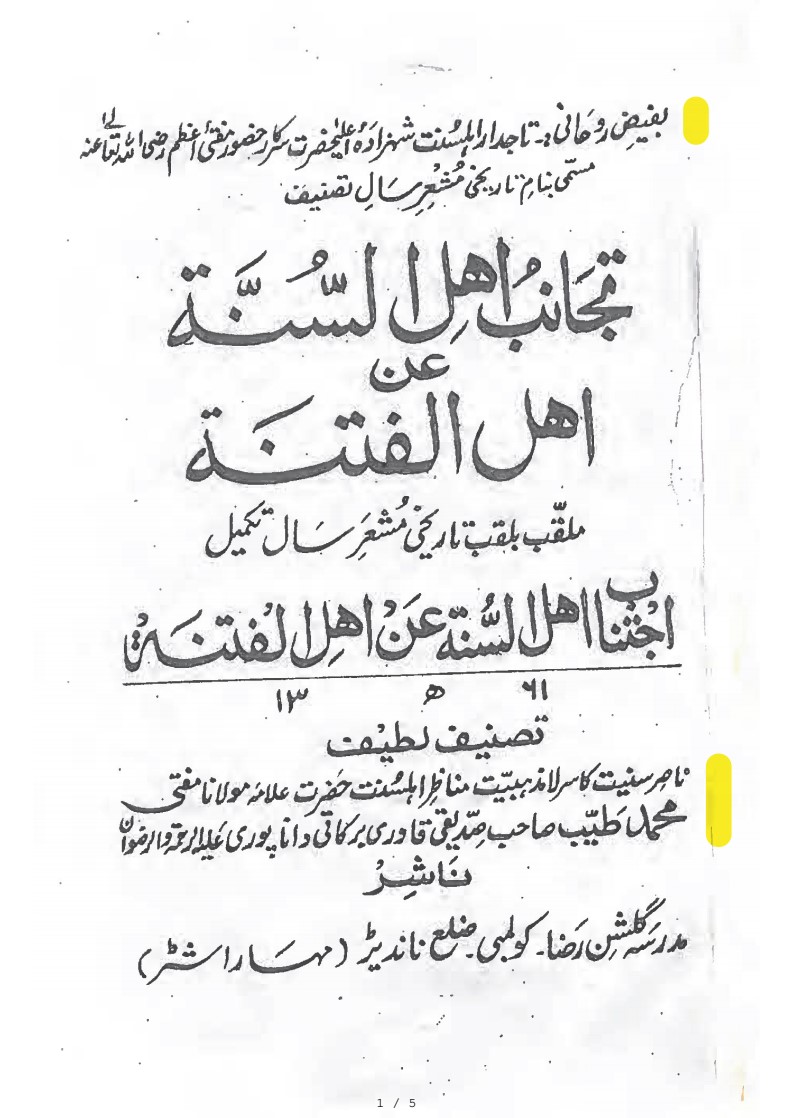 بفیضِ روحانی:۔ تاجدارِ اہلسُنت شہزادۂ اعلیٰحضرت سرکار حضور مفتیٔ اعظم رضی اللہ تعالےٰ عنہ
مسمّٰی بنامِ تاریخی مُشْعِرِ سَالِ تصنیف
تَجَانُبُ اَھلِ السُّنَّۃ
عن
اھل الفتنَۃ
ملقّب بلقب تاریخی مُشعَرِ سَال تکمیل
اجْتناب اھل السُّنّۃ عَنْ اھلِ الْفتنَۃْ
۱۳ ھ ۶۱
تصنیف لطیف
ناصرِ سنیت کاسرِ لامذہبیّت مناظرِ اہلسُنت حَضرت علامہ مولانا مفتی
محمد طَیِّب صاحب صِدّیقی قادری برکاتی داناپوری عَلیہ الرحمۃ والرضوان
نَاشِرْ
مدرسَہ گلشنِ رَضا۔ کولمبی۔ ضلع ناندیڑ (مہَاراشٹر)
1 / 5